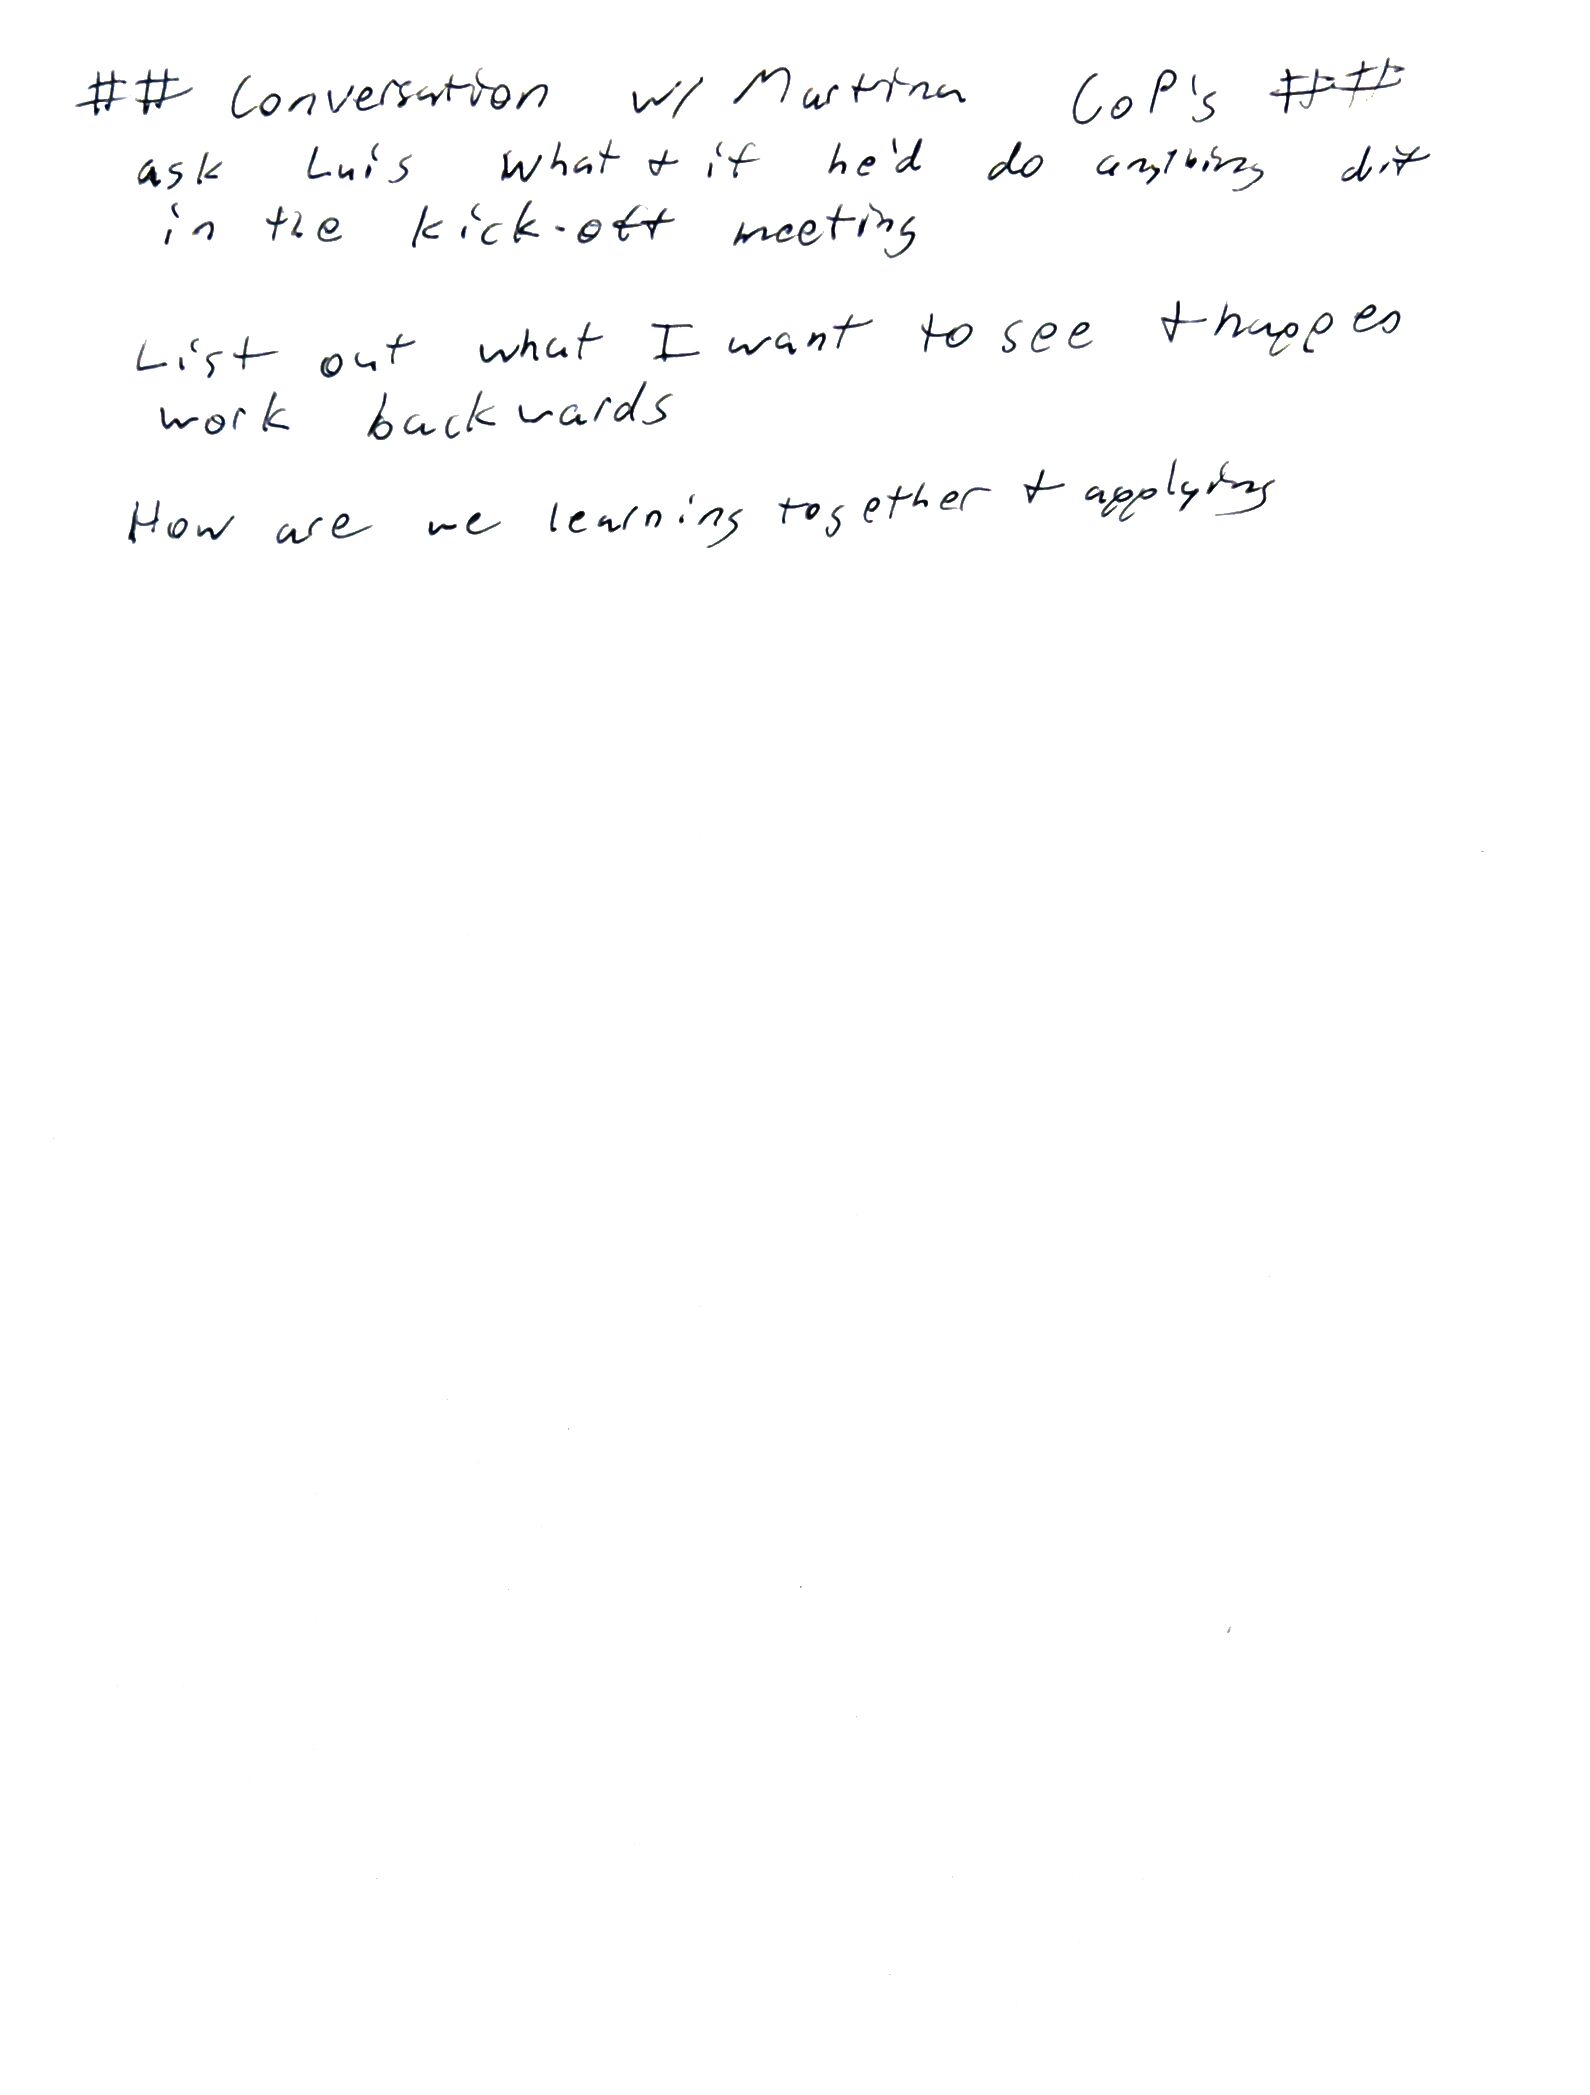 ## Conversation w/ Martina CoP's ##
ask Luis what + if he'd do anything dif
in the kick-off meeting
List out what I want to see + happen
work backwards
How are we learning together + applying